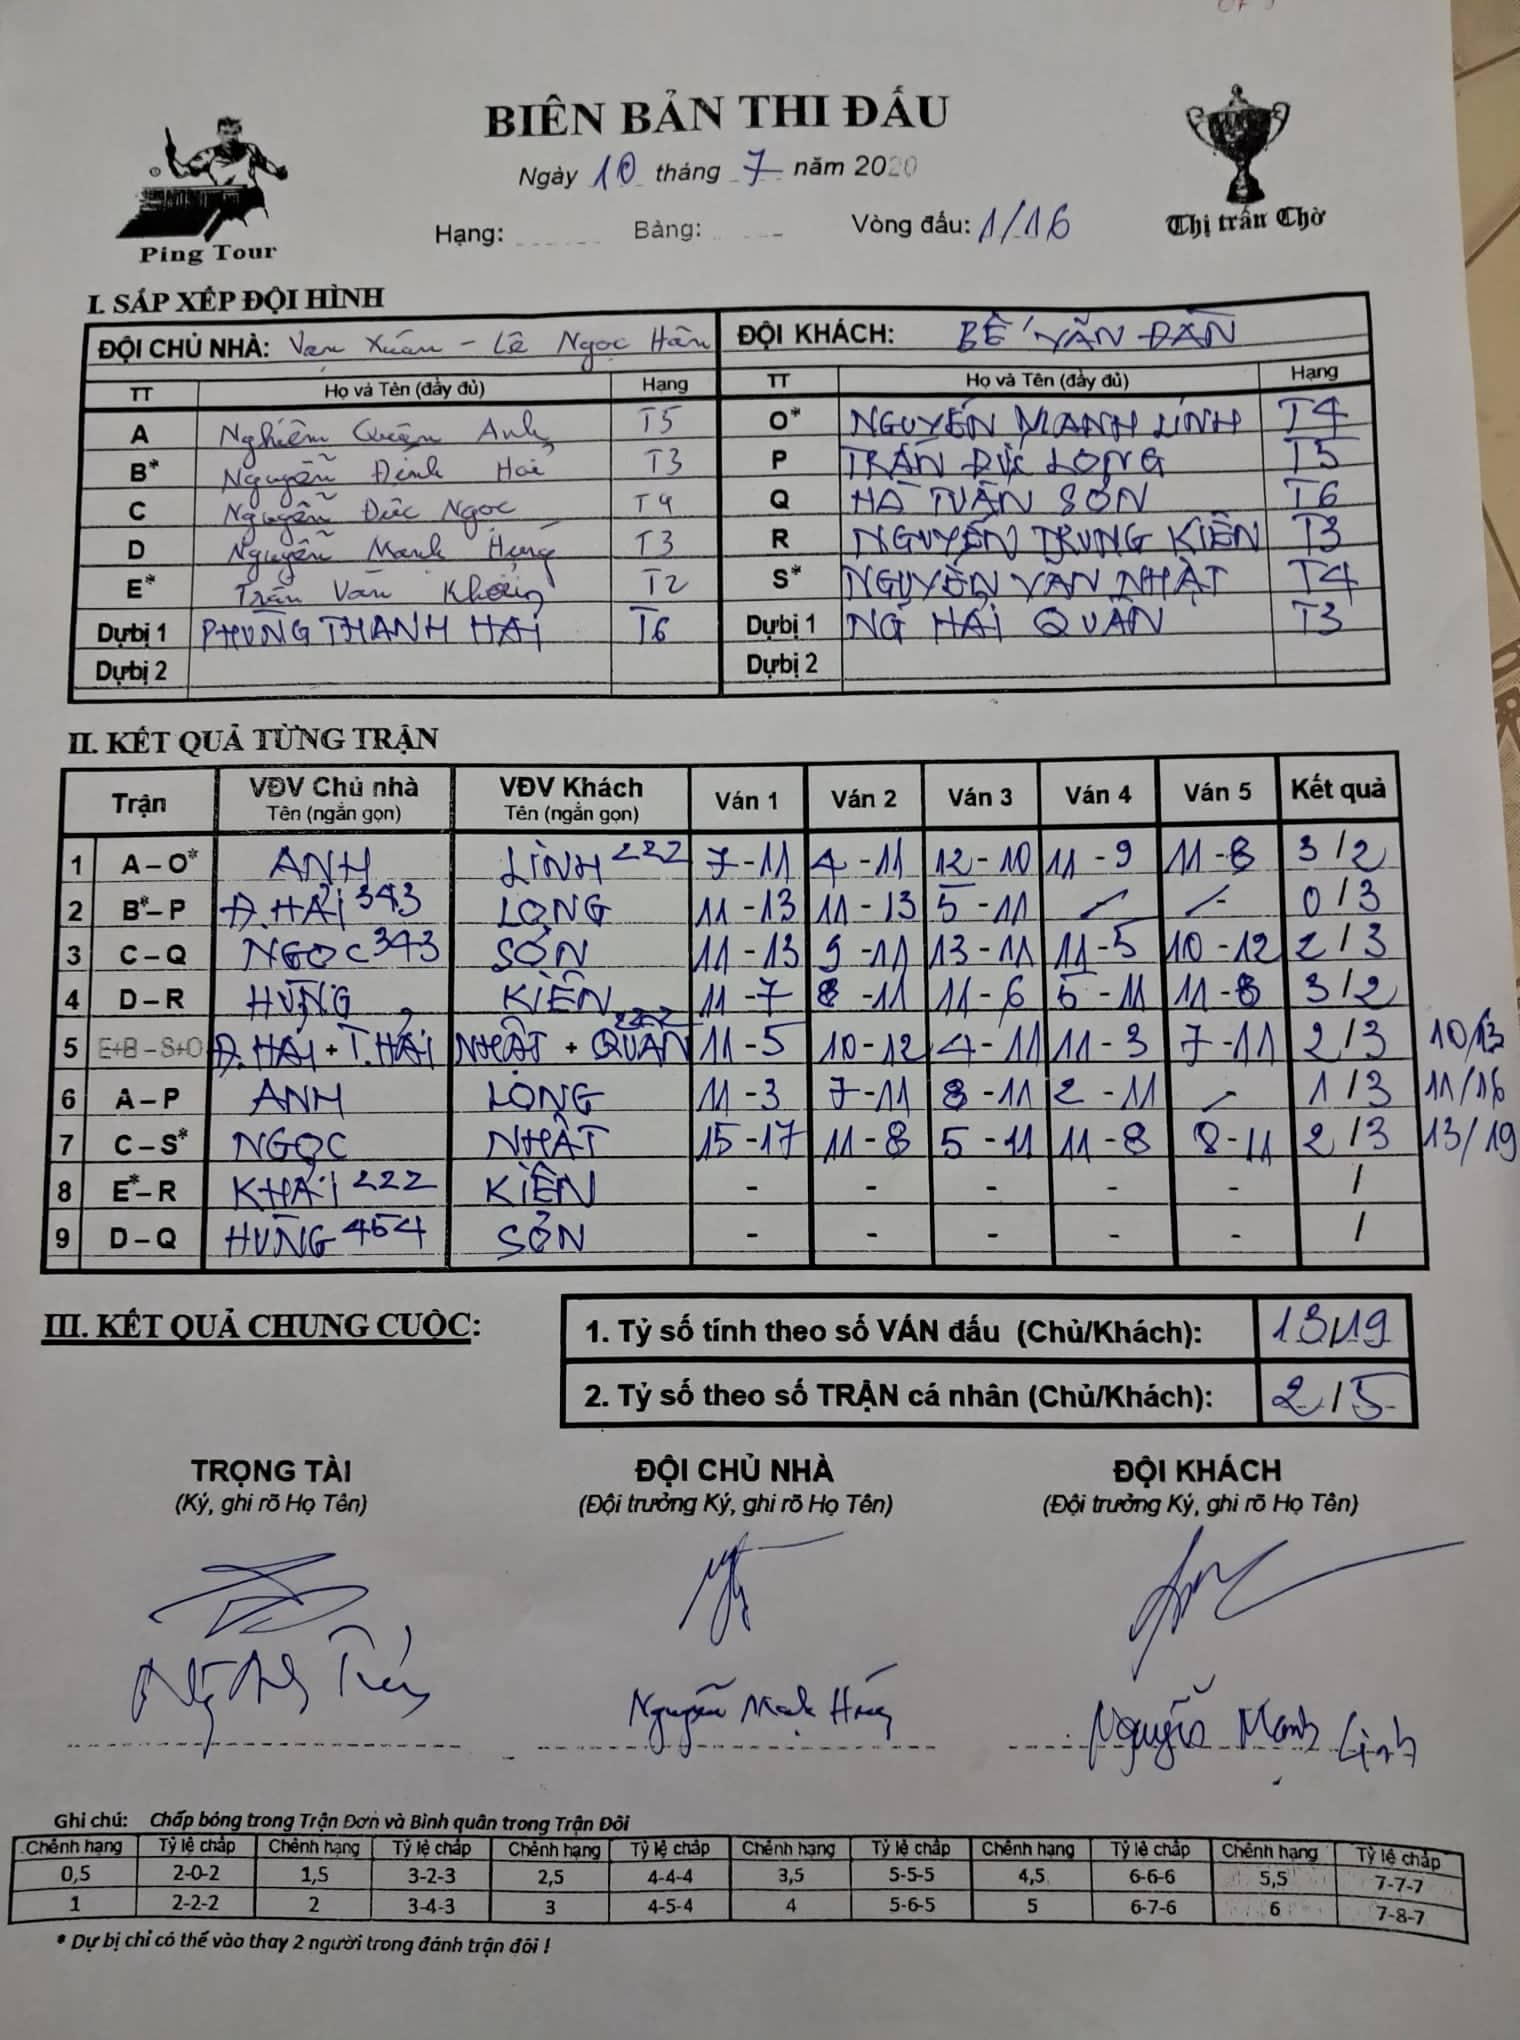 BIÊN BẢN THI ĐẤU
Ngày 10 tháng 7 năm 2020
Hạng: Bảng: Vòng đấu: 1/16
Ping Tour
Thị trấn Chờ
I. SẮP XẾP ĐỘI HÌNH
ĐỘI CHỦ NHÀ: Vạn Xuân - Lê Ngọc Hân ĐỘI KHÁCH: BẾ VĂN ĐÀN
TT Họ và Tên (đầy đủ) Hạng TT Họ và Tên (đầy đủ) Hạng
A Nghiêm Quận Anh T5 O* NGUYỄN MẠNH LINH T4
B* Nguyễn Đình Hải T3 P TRẦN ĐỨC LONG T5
C Nguyễn Đức Ngọc T4 Q HÀ TUẤN SƠN T6
D Nguyễn Mạnh Hùng T3 R NGUYỄN TRUNG KIÊN T3
E* Trần Văn T2 S* NGUYỄN VĂN NHẬT T4
Dự bị 1 PHÙNG THANH HẢI T6 Dự bị 1 NG HẢI QUÂN T3
Dự bị 2 Dự bị 2
II. KẾT QUẢ TỪNG TRẬN
Trận VĐV Chủ nhà Tên (ngắn gọn) VĐV Khách Tên (ngắn gọn) Ván 1 Ván 2 Ván 3 Ván 4 Ván 5 Kết quả
1 A – O* ANH LINH 222 7-11 4-11 12-10 11-9 11-8 3/2
2 B* – P Đ.HẢI 343 LONG 11-13 11-13 5-11 - - 0/3
3 C – Q NGỌC 343 SƠN 11-13 9-11 13-11 11-5 10-12 2/3
4 D – R HÙNG KIÊN 11-7 8-11 11-6 5-11 11-8 3/2
5 E+B – S+O Đ.HẢI + T.HẢI NHẬT + QUÂN 222 11-5 10-12 4-11 11-3 7-11 2/3 10/13
6 A – P ANH LONG 11-3 7-11 8-11 2-11 - 1/3 11/16
7 C – S* NGỌC NHẬT 15-17 11-8 5-11 11-8 8-11 2/3 13/19
8 E* – R KHẢI 222 KIÊN - - - - - /
9 D – Q HÙNG 454 SƠN - - - - - /
III. KẾT QUẢ CHUNG CUỘC:
1. Tỷ số tính theo số VÁN đấu (Chủ/Khách): 13/19
2. Tỷ số theo số TRẬN cá nhân (Chủ/Khách): 2/5
TRỌNG TÀI ĐỘI CHỦ NHÀ ĐỘI KHÁCH
(Ký, ghi rõ Họ Tên) (Đội trưởng Ký, ghi rõ Họ Tên) (Đội trưởng Ký, ghi rõ Họ Tên)
Nguyễn Mạnh Hùng Nguyễn Mạnh Linh
Ghi chú: Chấp bóng trong Trận Đơn và Bình quân trong Trận Đôi
Chênh hạng Tỷ lệ chấp Chênh hạng Tỷ lệ chấp Chênh hạng Tỷ lệ chấp Chênh hạng Tỷ lệ chấp Chênh hạng Tỷ lệ chấp Chênh hạng Tỷ lệ chấp
0,5 2-0-2 1,5 3-2-3 2,5 4-4-4 3,5 5-5-5 4,5 6-6-6 5,5 7-7-7
1 2-2-2 2 3-4-3 3 4-5-4 4 5-6-5 5 6-7-6 6 7-8-7
* Dự bị chỉ có thể vào thay 2 người trong đánh trận đôi !